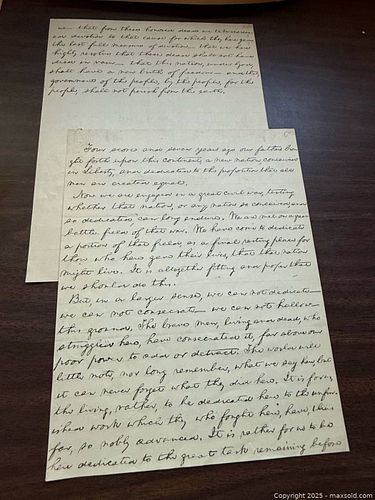 us - that from these honored dead we take increas-
ed devotion to that cause for which they here gave
the last full measure of devotion - that we here
highly resolve that these dead shall not have
died in vain - that this nation, under God,
shall have a new birth of freedom - and that
government of the people, by the people, for the
people, shall not perish from the earth.
Four score and seven years ago our fathers brou-
ght forth upon this continent, a new nation, conceived
in Liberty, and dedicated to the proposition that all
men are created equal.
Now we are engaged in a great civil war, testing
whether that nation, or any nation so conceived, and
so dedicated can long endure. We are met on a great
battle field of that war. We have come to dedicate
a portion of that field, as a final resting place for
those who here gave their lives, that that nation
might live. It is altogether fitting and proper that
we should do this.
But, in a larger sense, we can not dedicate -
we can not consecrate - we can not hallow -
this ground. The brave men, living and dead, who
struggled here, have consecrated it, far above our
poor power to add or detract. The world will
little note, nor long remember, what we say here, but
it can never forget what they did here. It is for us,
the living, rather, to be dedicated here to the unfin-
ished work which they who fought here, have, thus
far, so nobly advanced. It is rather for us to be
here dedicated to the great task remaining before
Copyright 2025 - maxsold.com